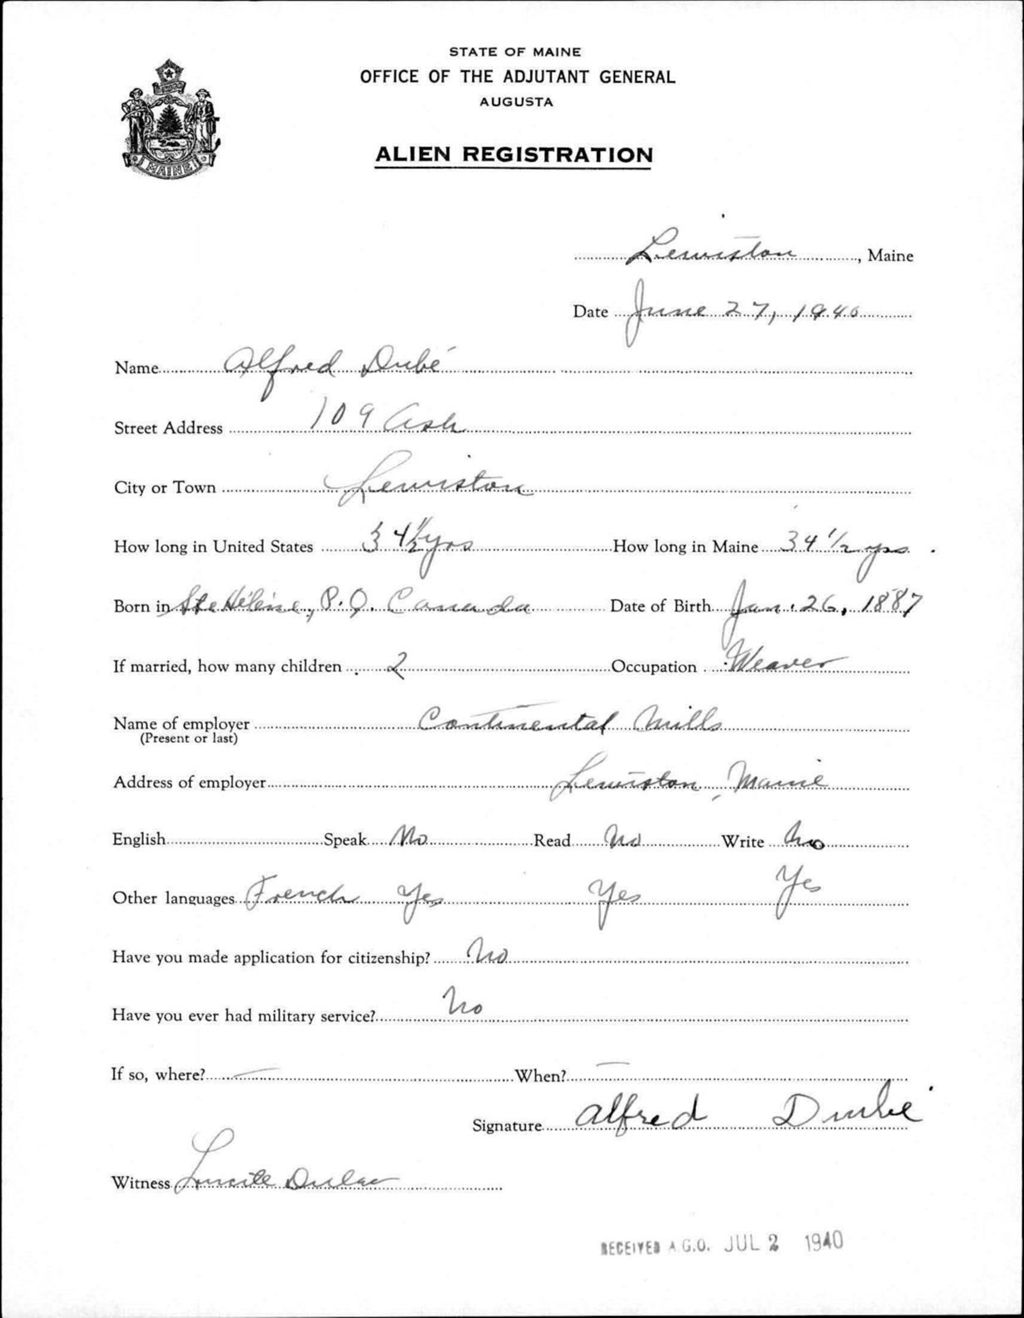 STATE OF MAINE
OFFICE OF THE ADJUTANT GENERAL
AUGUSTA
ALIEN REGISTRATION
MAINE
Lewiston, Maine
Date June 27, 1940
Name Alfred Dubé
Street Address 109 Ash
City or Town Lewiston
How long in United States 34 1/2 yrs How long in Maine 34 1/2 yrs.
Born in Ste Hélène, P.Q. Canada Date of Birth Jan. 26, 1887
If married, how many children 2 Occupation Weaver
Name of employer Continental Mills
(Present or last)
Address of employer Lewiston, Maine
English Speak No Read No Write No
Other languages French Yes Yes Yes
Have you made application for citizenship? No
Have you ever had military service? No
If so, where? — When? —
Signature Alfred Dube
Witness Lucille Dulac
RECEIVED A.G.O. JUL 2 1940